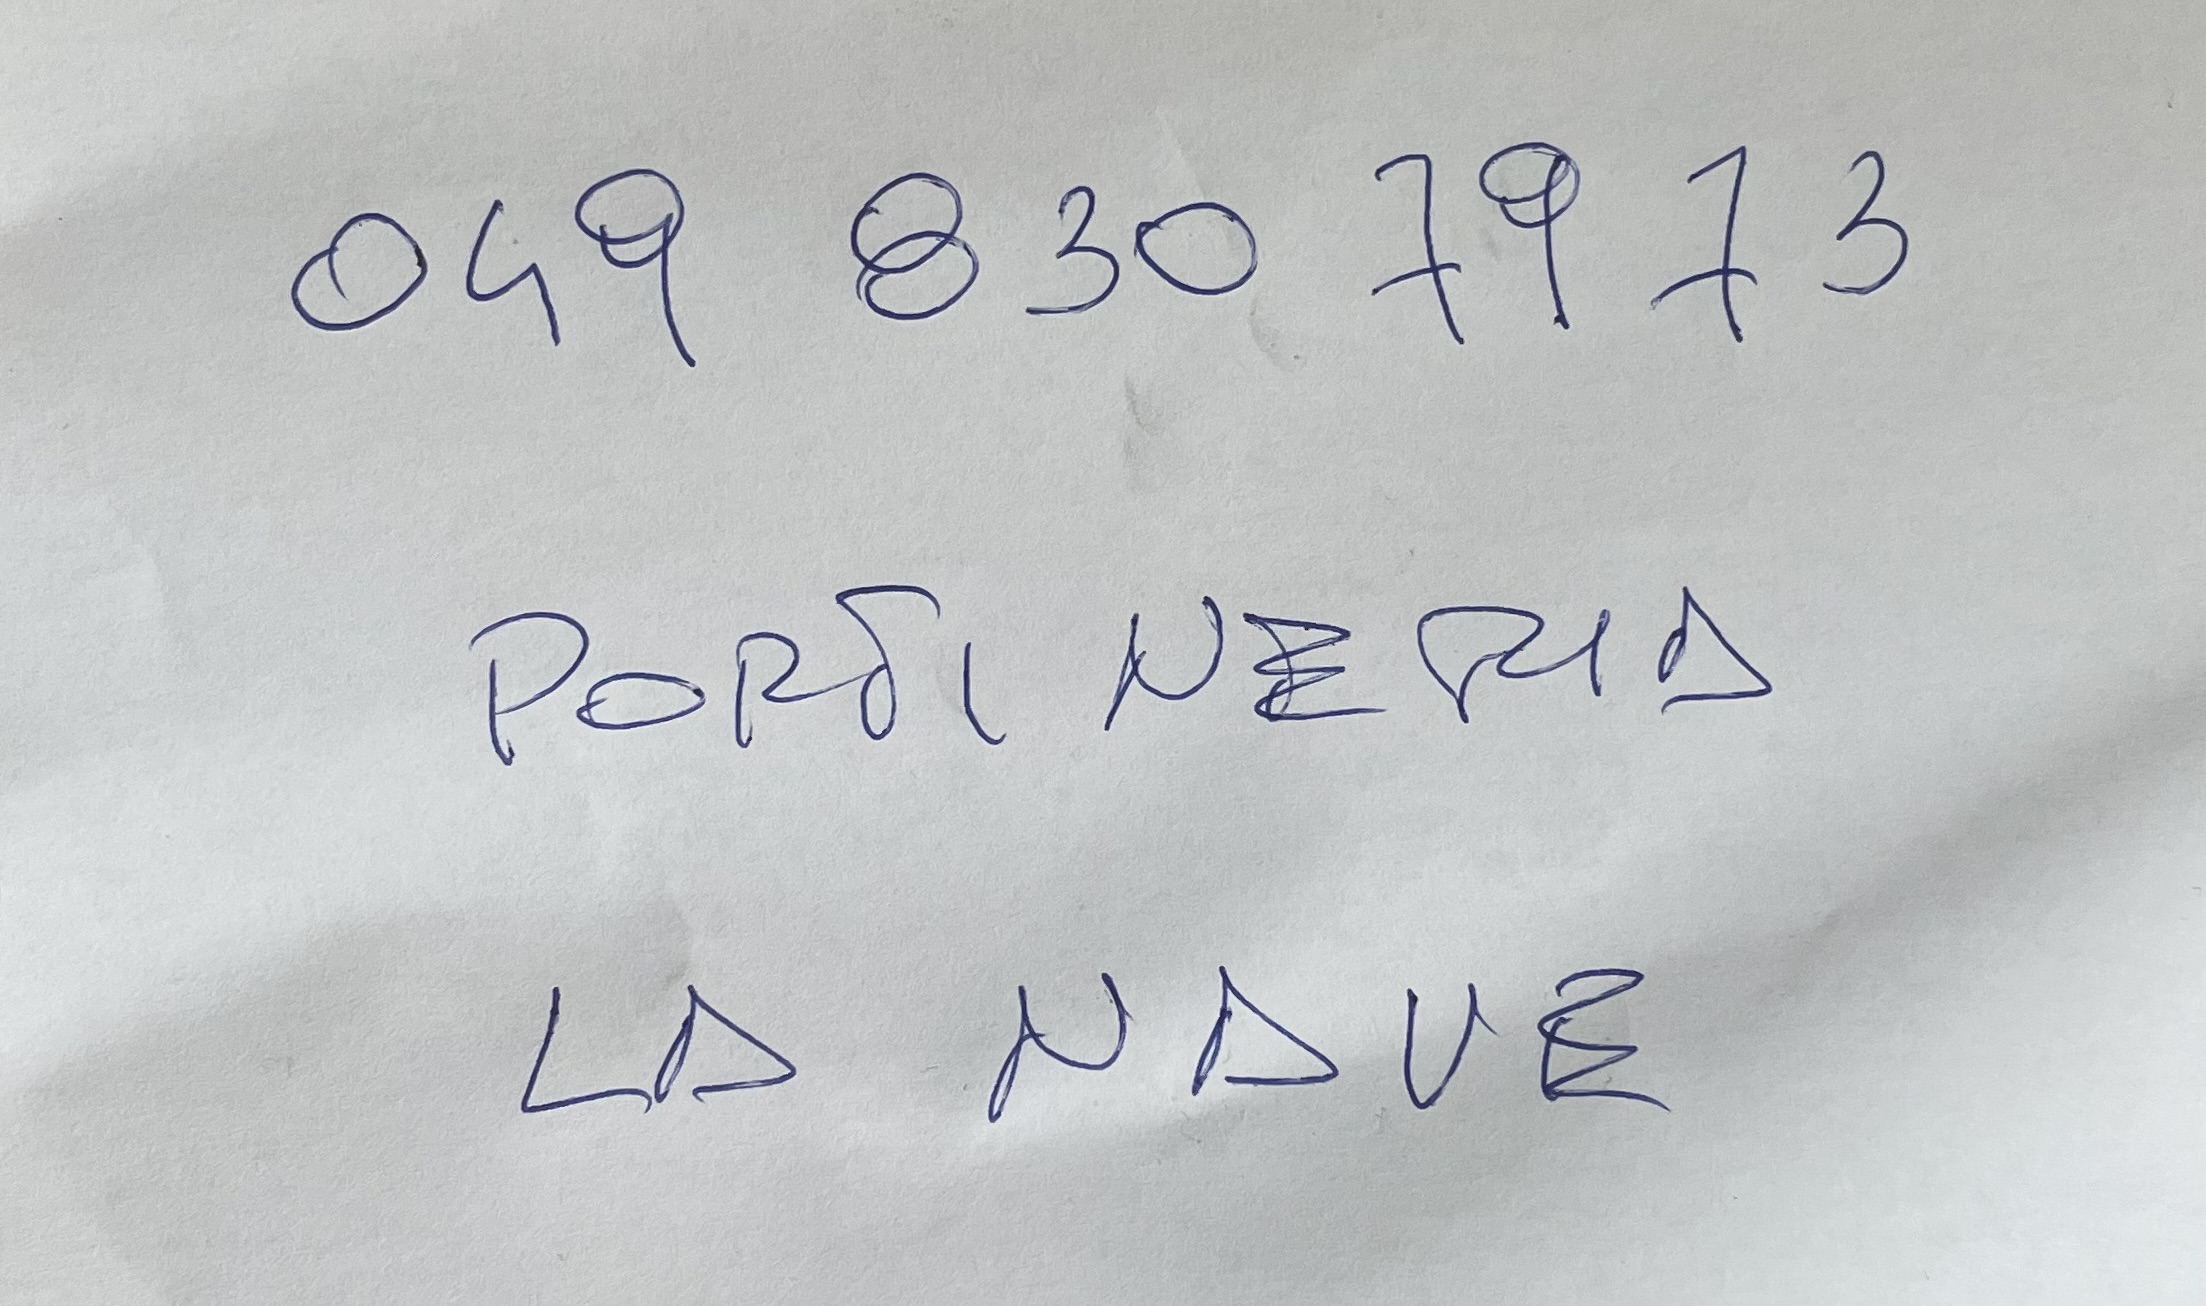 049 830 7973
PORTINERIA
LA NAVE